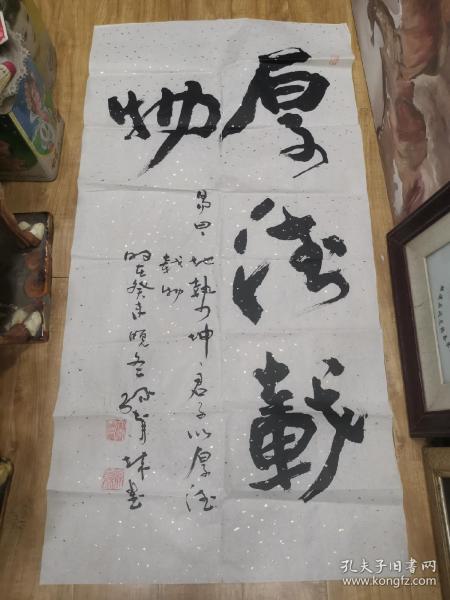 厚德載
物
易曰地勢坤君子以厚德
載物
時在癸未晚冬
書
孔夫子旧书网
www.kongfz.com